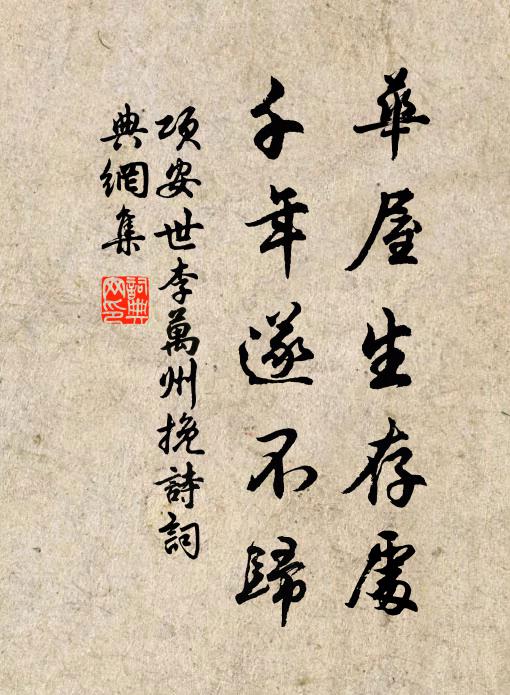 華屋生存處
千年遂不歸
項安世李萬州挽詩詞
典網集
詞典網印